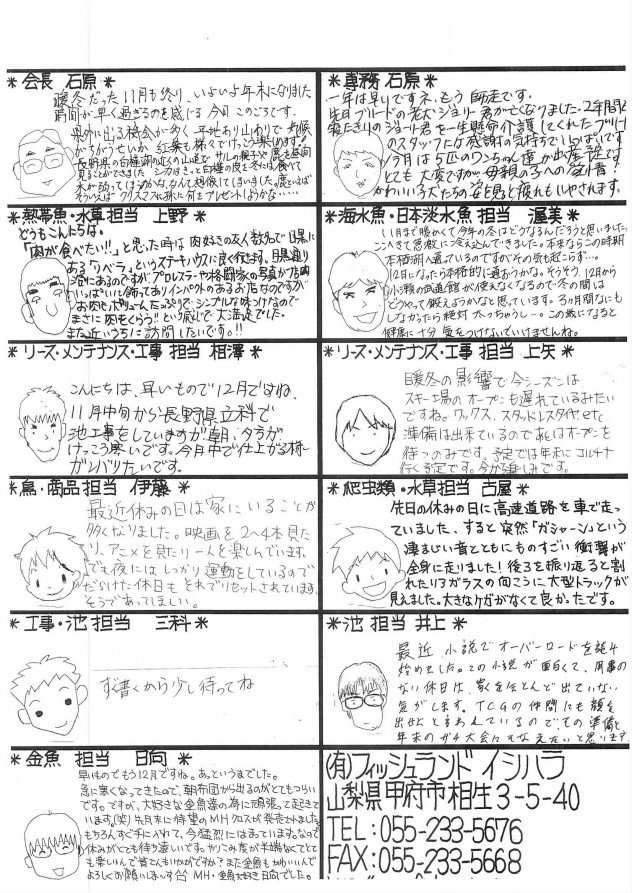 * 会長 石原 *
暖冬だった11月も終り、いよいよ年末になりました
時間が早く過ぎるのを感じる今日このごろです。
県外に出る機会が多く平地あり山ありで気候
がちがうせいか紅葉も様々でけっこう楽しめます!
長野県の白樺湖の近くの山道でサルの親子や鹿を毎回
見ることができました
* 専務 石原 *
一年は早いですネ、もう師走です。
先日ブルードの老犬ジョリー君が亡くなりました。2年間
寝たきりのジョリー君を一生懸命介護してくれた
のスタッフには感謝の気持ちでいっぱいです
今月は5匹のワンちゃん達が出産
とても大変ですが母親の子への愛情!
かわいい子犬たちの姿を見ると疲れもいやされます。
* 熱帯魚・水草担当 上野 *
どうもこんたちは。
「肉が食べたい!!」と思った時は肉好きの友人数名で目黒に
ある「リベラ」というステーキハウスに良く行きます。目黒通り
沿にあるのですが、プロレスラーや格闘家の写真が店内
いっぱいに飾ってありインパクトのあるお店なのですが
お肉もボリュームたっぷりで、シンプルな味つけなので
まさに肉をくらう!!という感じで大満足でした。
また近いうちに訪問したいです。!!
* 海水魚・日本淡水魚 担当 渥美 *
11月まで暖かくて今年の冬はどうなるんだろうと思いました。
ここへきて急激に冷え込んできました。本来ならこの時期
本栖湖へ通っているのですがその気も起こらず…
12月になったら本格的に通おうかな。そうそう、12月から
小瀬の武道館が使えなくなるので冬の間は
どうやって鍛えようかなと思っています。3ヶ月間なにも
しなかったら絶対太っちゃうし…。この歳になると
健康に十分気をつけないといけませんね。
* リース・メンテナンス・工事 担当 相澤 *
こんにちは、早いもので12月ですね。
11月中旬から長野県立科で
池工事をしていますが朝、夕方が
けっこう寒いです。今月中で仕上がる様に
ガンバリたいです。
* リース・メンテナンス・工事 担当 上矢 *
暖冬の影響で今シーズンは、
スキー場のオープンも遅れているみたい
ですね。ワックス、スタッドレスタイヤetc
準備は出来ているのであとはオープンを
待つのみです。予定では年末にコルチナ
行く予定です。今から楽しみです。
* 鳥・商品担当 伊藤 *
最近休みの日は家にいることが
多くなりました。映画を2〜4本見た
り、アニメを見たり一人を楽しんでいます。
でも夜にはしっかり運動をしているので
だらけた休日もそれでリセットされています。
そうであってほしい。
* 爬虫類・水草担当 古屋 *
先日の休みの日に高速道路を車で走っ
ていました、すると突然「ガシャーン」という
凄まじい音とともにものすごい衝撃が
全身に走りました!後ろを振り返ると割
れたリアガラスの向こうに大型トラックが
見えました。大きなケガがなくて良かったです。
* 工事・池 担当 三科 *
すぐ書くから少し待ってね
* 池 担当 井上 *
最近 小説でオーバーロードを読み
始めました。この小説が面白くて、用事の
ない休日は、家をほとんど出ていない
気がします。TCGの仲間にも顔を
出せと言われているので、その準備と
年末のガチ大会にそなえたいと思います
* 金魚 担当 日向 *
早いものでもう12月ですね。あっというまでした。
急に寒くなってきたので、朝布団から出るのがとてもつらい
です。ですが、大好きな金魚達の為に頑張って起きて
います。(笑)先月末に待望のMHクロスが発売されました。
もちろんすぐ手に入れて、今猛烈にはまっています。なので
休みがとても待ち遠しいです。やりこみ度が半端なくてとて
も楽しいんで皆さんもいかがですか?また金魚もかわいいんで
よろしくお願いしまーす MH・金魚大好き日向でした。
(有)フィッシュランド イシハラ
山梨県甲府市相生3-5-40
TEL:055-233-5676
FAX:055-233-5668